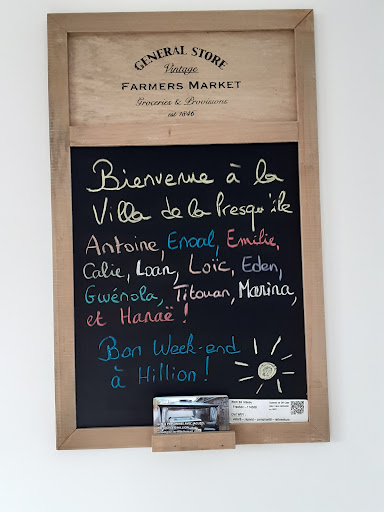 GENERAL STORE
Vintage
FARMERS MARKET
Groceries & Provisions
est 1846
Bienvenue à la
Villa de la Presqu'île
Antoine, Enoal, Emilie,
Calie, Loan, Loïc, Eden,
Gwénola, Titouan, Marina,
et Hanaë !
Bon Week-end
à Hillion !